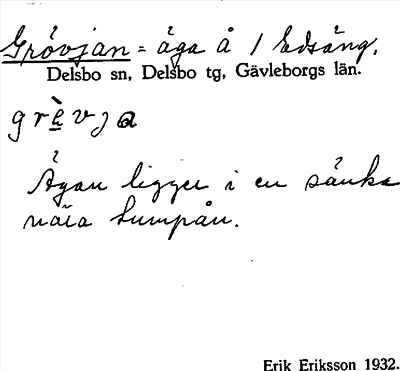 Grövjan = äga å / Edsäng.
Delsbo sn, Delsbo tg, Gävleborgs län.
grèvja
Ägan ligger i en sänka
nära Sumpån.
Erik Eriksson 1932.